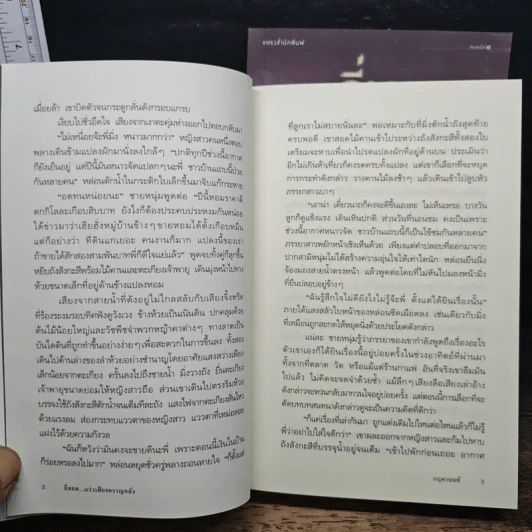 แพรวสำนักพิมพ์
เมื่อยล้า เขาบิดตัวจนกระดูกลั่นดังกรอบแกรบ
เงียบไปชั่วอึดใจ เสียงจากเงาตะคุ่มห่างออกไปตอบกลับมา
"ไม่เหนื่อยจ้ะพี่มิ่ง หนาวมากกว่า" หญิงสาวคนหนึ่งตอบ
พลางเดินข้ามแปลงผักมานั่งลงใกล้ๆ "ปกติทุกปีช่วงนี้อากาศ
ก็ยังเย็นอยู่ แต่ปีนี้มันหนาวจัดแปลกๆ นะพี่ ชาวบ้านแถบนี้ป่วย
กันหลายคน" หล่อนตักน้ำในกระติกใบเล็กขึ้นมาจิบแก้กระหาย
"อดทนหน่อยนะ" ชายหนุ่มพูดต่อ "ปีนี้หอมราคาดี
ตกกิโลละเกือบสิบบาท ยังไงก็ต้องประคบประหงมกันหน่อย
ได้ข่าวมาว่าเฮียฮังหมู่บ้านข้างๆ ขายหอมได้ตั้งเกือบหมื่น
แต่ก็อย่างว่า ที่ดินแกเยอะ คนงานก็มาก แปลงนี้ของเรา
ถ้าขายได้สักสองสามพันบาทพี่ก็ดีใจแย่แล้ว" พูดจบทั้งคู่ก็ลุกขึ้น
หยิบถังสังกะสีพร้อมไม้คานและตะเกียงเจ้าพายุ เดินมุ่งหน้าไปทาง
ห้วยขนาดเล็กที่อยู่ด้านข้างแปลงหอม
เสียงจากสายน้ำที่ดังอยู่ไม่ไกลสลับกับเสียงจิ้งหรีด
ที่ร้องระงมรอบทิศฟังดูวังเวง ข้างห้วยเป็นเนินดิน ปกคลุมด้วย
ต้นไม้น้อยใหญ่และวัชพืชจำพวกหญ้าคาต่างๆ ทางลาดเป็น
บันไดดินที่ถูกทำขึ้นอย่างง่ายๆ เพื่อสะดวกในการขึ้นลง ทั้งสอง
เดินไปด้านล่างของลำห้วยอย่างชำนาญโดยอาศัยแสงสว่างเพียง
เล็กน้อยจากตะเกียง ครั้นลงไปถึงชายน้ำ มิ่งวางถัง ยื่นตะเกียง
เจ้าพายุขนาดย่อมให้หญิงสาวถือ ส่วนเขาเดินไปตรงริมห้วย
บรรจงใช้ถังสังกะสีตักน้ำจนเต็มทีละถัง แสงไฟจากตะเกียงสั่นไหว
ด้วยแรงลม ส่องกระทบแววตาของหญิงสาว แววตาที่เหม่อลอย
แฝงไว้ด้วยความกังวล
"ฉันก็หวังว่ามันคงจะขายดีนะพี่ เพราะตอนนี้เงินในบ้าน
ก็ร่อยหรอลงไปมาก" หล่อนหยุดชั่วครู่พลางถอนหายใจ "ก็ตั้งแต่
2
ที่ลูกเราไม่สบายนั่นละ" พอเหมาะกับที่มิ่งตักน้ำถังสุดท้าย
ครบพอดี เขาสอดไม้คานเข้าระหว่างถังสังกะสีทั้งสองใบ
เตรียมจะหาบเพื่อนำไปรดแปลงผักที่อยู่ด้านบน ประเมินว่า
อีกไม่เกินห้าเที่ยวก็คงรดครบทั้งแปลง แต่เขาก็เลือกที่จะหยุด
การกระทำดังกล่าว วางคานไม้ลงช้าๆ แล้วเดินเข้าไปลูบหัว
ภรรยาสาวเบาๆ
"เอาน่า เดี๋ยวนาถก็คงจะดีขึ้นเองละ ไม่เห็นเหรอ บางวัน
ลูกก็ดูแข็งแรง เดินเหินปกติ ส่วนวันที่นอนซม คงเป็นเพราะ
ช่วงนี้อากาศหนาวจัด ชาวบ้านแถบนี้ก็เป็นไข้ซมกันหลายคน"
ภรรยาสาวพยักหน้าเชิงเห็นด้วย เพียงแต่คำปลอบที่ออกมาจาก
ปากสามีหนุ่มไม่ได้สร้างความอุ่นใจให้เท่าใดนัก หล่อนยืนนิ่ง
จ้องมองสายน้ำตรงหน้า แล้วพูดต่อโดยที่ไม่หันไปมองหน้ามิ่ง
ที่ยืนปลอบอยู่ข้างๆ
"ฉันรู้สึกไม่ดียังไงไม่รู้จ้ะพี่ ตั้งแต่ได้ยินเรื่องนั้น"
ภายใต้แสงสลัวใบหน้าของหล่อนซีดเผือดลง เช่นเดียวกับมิ่ง
ที่เหมือนถูกสะกดให้หยุดนิ่งด้วยประโยคดังกล่าว
แน่ละ ชายหนุ่มรู้ว่าภรรยาของเขากำลังพูดถึงเรื่องอะไร
ตัวเขาเองก็ได้ยินเรื่องนี้อยู่บ่อยครั้งในช่วงอาทิตย์ที่ผ่านมา
ทั้งจากที่ตลาด วัด หรือแม้แต่ร้านกาแฟ อันที่จริงเขาลืมมัน
ไปแล้ว ไม่คิดจะจดจำด้วยซ้ำ แม้ลึกๆ เสียงลือเสียงเล่าอ้าง
ดังกล่าวจะหวนกลับมากวนใจอยู่บ่อยครั้ง แต่ตอนนี้การเลือกที่จะ
ตัดบทบทสนทนาดังกล่าวดูจะเป็นความคิดที่ดีกว่า
"ก็แค่เรื่องที่เล่ากันมา ถูกแต่งเติมไปไหนต่อไหนแล้วก็ไม่รู้
พี่ว่าอย่าไปใส่ใจดีกว่า" เขาผละออกจากหญิงสาวและก้มไปหาบ
ถังสังกะสีที่บรรจุน้ำอยู่จนเต็ม "เข้าไปพักก่อนเถอะ อากาศ
3